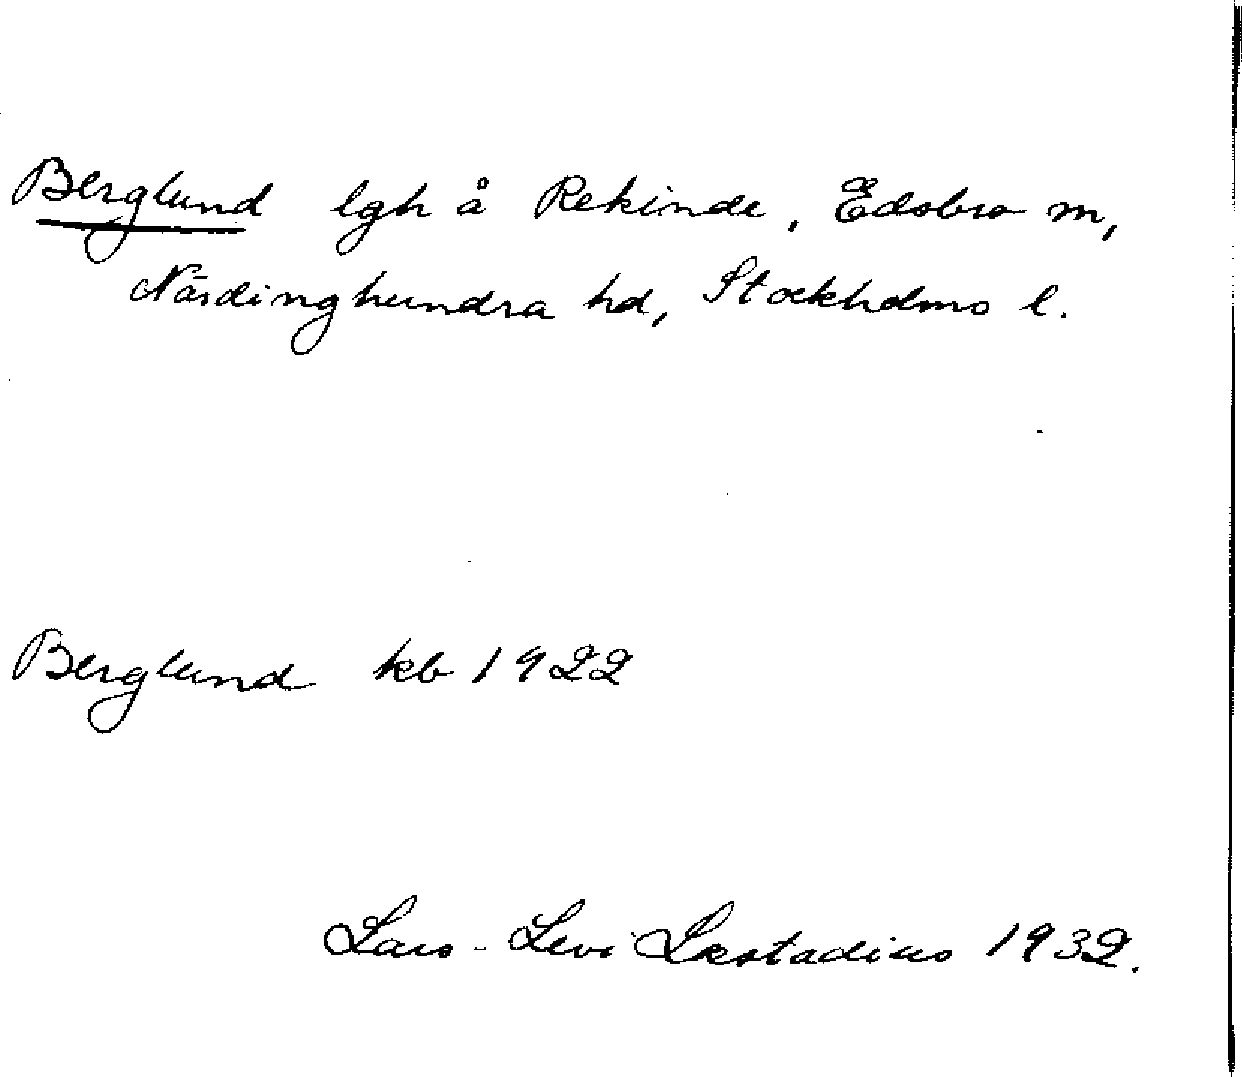 Berglund lgh å Rekinde, Edsbro sn,
Närdinghundra hd, Stockholms l.
Berglund kb 1922
Lars-Levi Læstadius 1932.